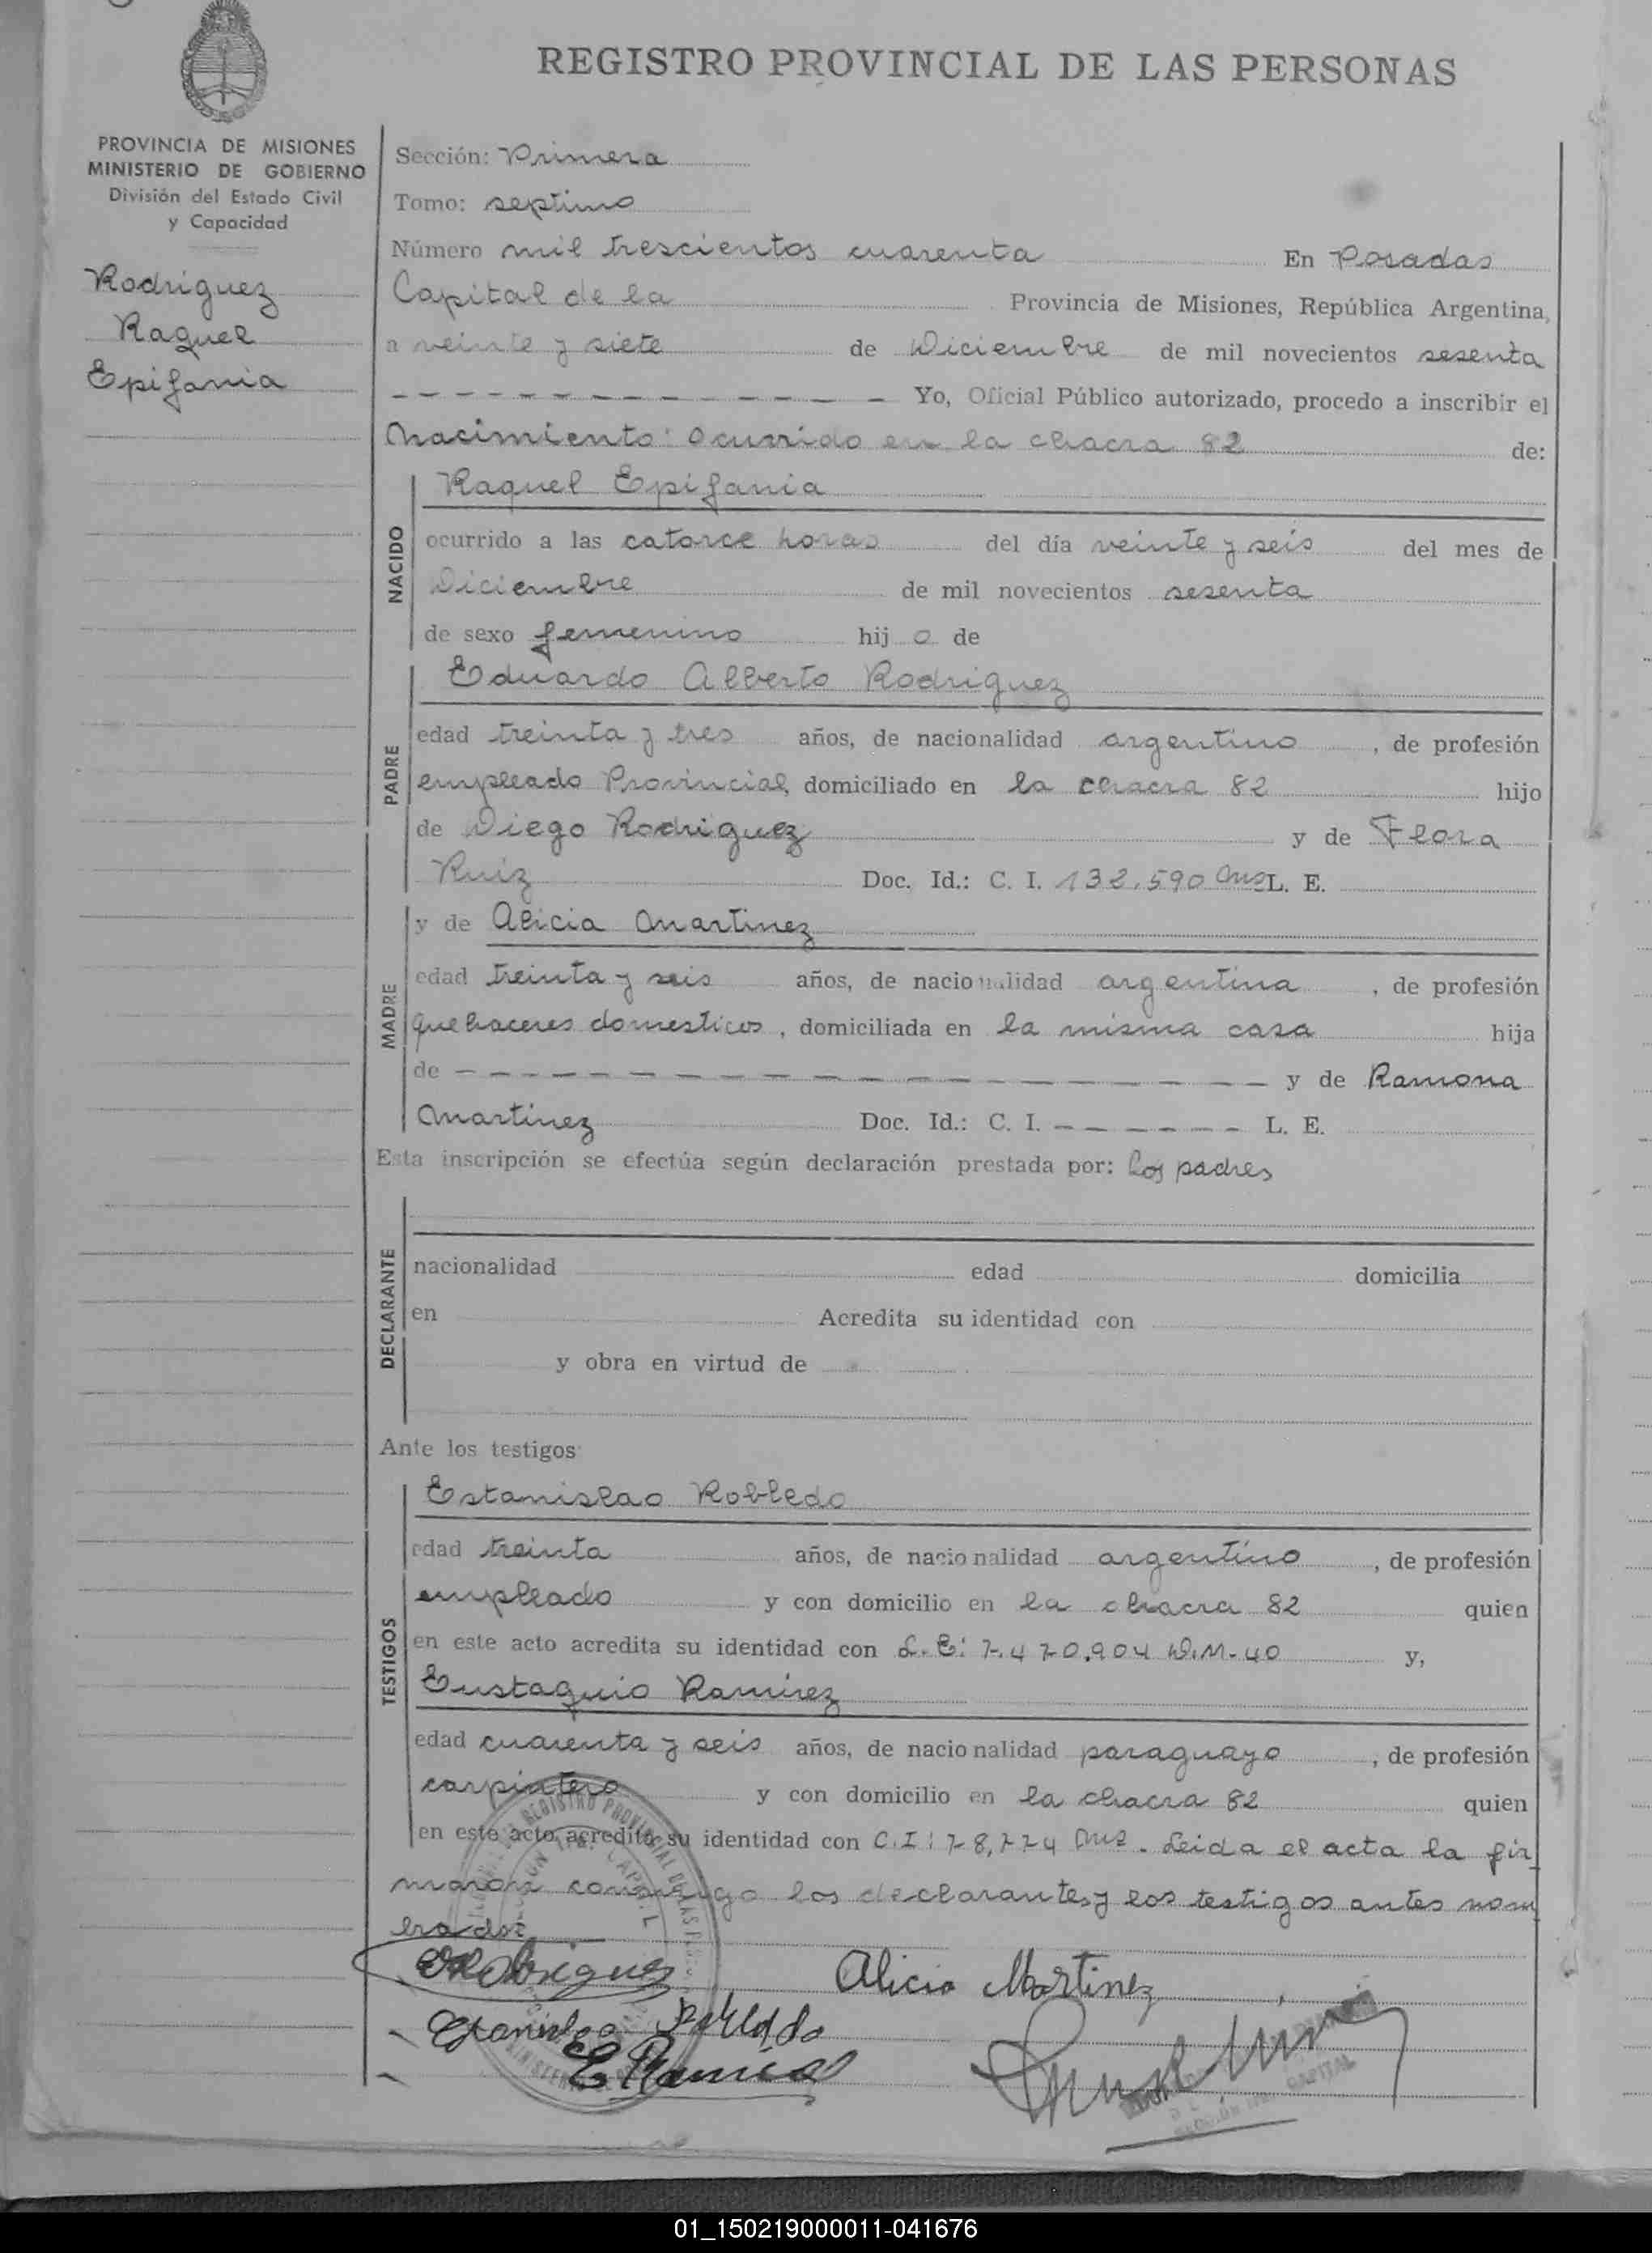 REGISTRO PROVINCIAL DE LAS PERSONAS
PROVINCIA DE MISIONES
MINISTERIO DE GOBIERNO
División del Estado Civil
y Capacidad
Rodriguez
Raquel
Epifania
Sección: Primera
Tomo: septimo
Número mil trescientos cuarenta En Posadas
Capital de la Provincia de Misiones, República Argentina,
a veinte y siete de Diciembre de mil novecientos sesenta
Yo, Oficial Público autorizado, procedo a inscribir el
Nacimiento ocurrido en la chacra 82 de:
NACIDO
Raquel Epifania
ocurrido a las catorce horas del día veinte y seis del mes de
Diciembre de mil novecientos sesenta
de sexo femenino hij a de
PADRE
Eduardo Alberto Rodriguez
edad treinta y tres años, de nacionalidad argentino, de profesión
empleado Provincial, domiciliado en la chacra 82 hijo
de Diego Rodriguez y de Flora
Ruiz Doc. Id.: C. I. 132.590 Mns L. E.
MADRE
y de Alicia Martinez
edad treinta y seis años, de nacionalidad argentina, de profesión
quehaceres domesticos, domiciliada en la misma casa hija
de — — — y de Ramona
Martinez Doc. Id.: C. I. — — — L. E.
Esta inscripción se efectúa según declaración prestada por: los padres
DECLARANTE
nacionalidad edad domicilia
en Acredita su identidad con
y obra en virtud de
Ante los testigos
TESTIGOS
Estanislao Robledo
edad treinta años, de nacionalidad argentino, de profesión
empleado y con domicilio en la chacra 82 quien
en este acto acredita su identidad con L.E: 7.470.904 D.M-40 y,
Eustaquio Ramirez
edad cuarenta y seis años, de nacionalidad paraguayo, de profesión
carpintero y con domicilio en la chacra 82 quien
en este acto acredita su identidad con C.I: 78,774 Mns. Leida el acta la fir
maron conmigo los declarantes y los testigos antes nom
brados
Alicia Martinez
E Ramirez
CAPITAL
01_150219000011-041676